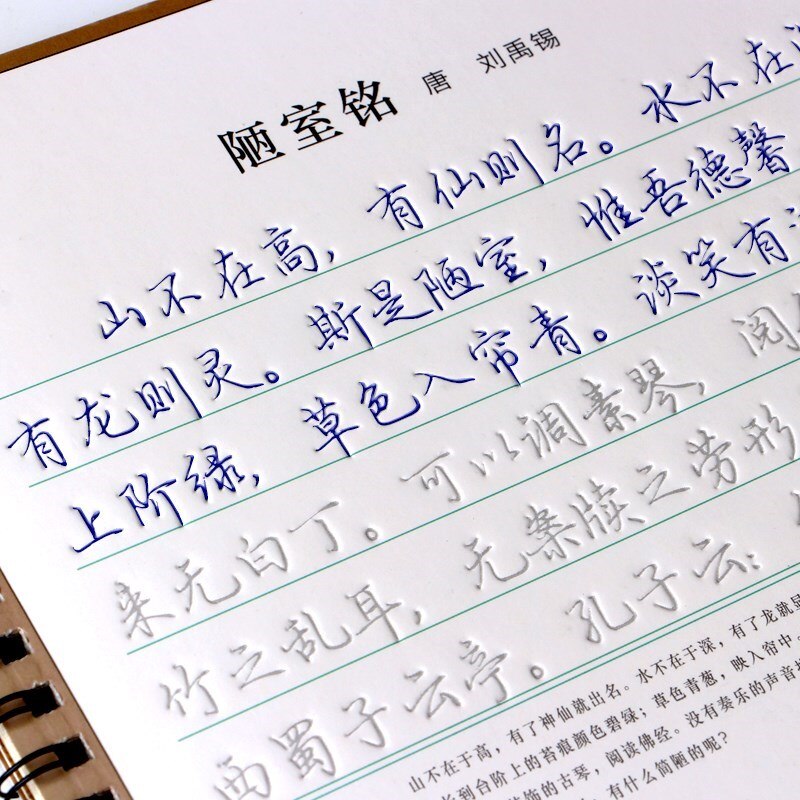 陋室铭
唐 刘禹锡
山不在高，有仙则名。水不在
有龙则灵。斯是陋室，惟吾德馨
上阶绿，草色入帘青。谈笑有
来无白丁。可以调素琴，阅
竹之乱耳，无案牍之劳形
西蜀子云亭。孔子云：
山不在于高，有了神仙就出名。水不在于深，有了龙就显
长到台阶上的苔痕颜色碧绿；草色青葱，映入帘中。
饰的古琴，阅读佛经。没有奏乐的声音
有什么简陋的呢？